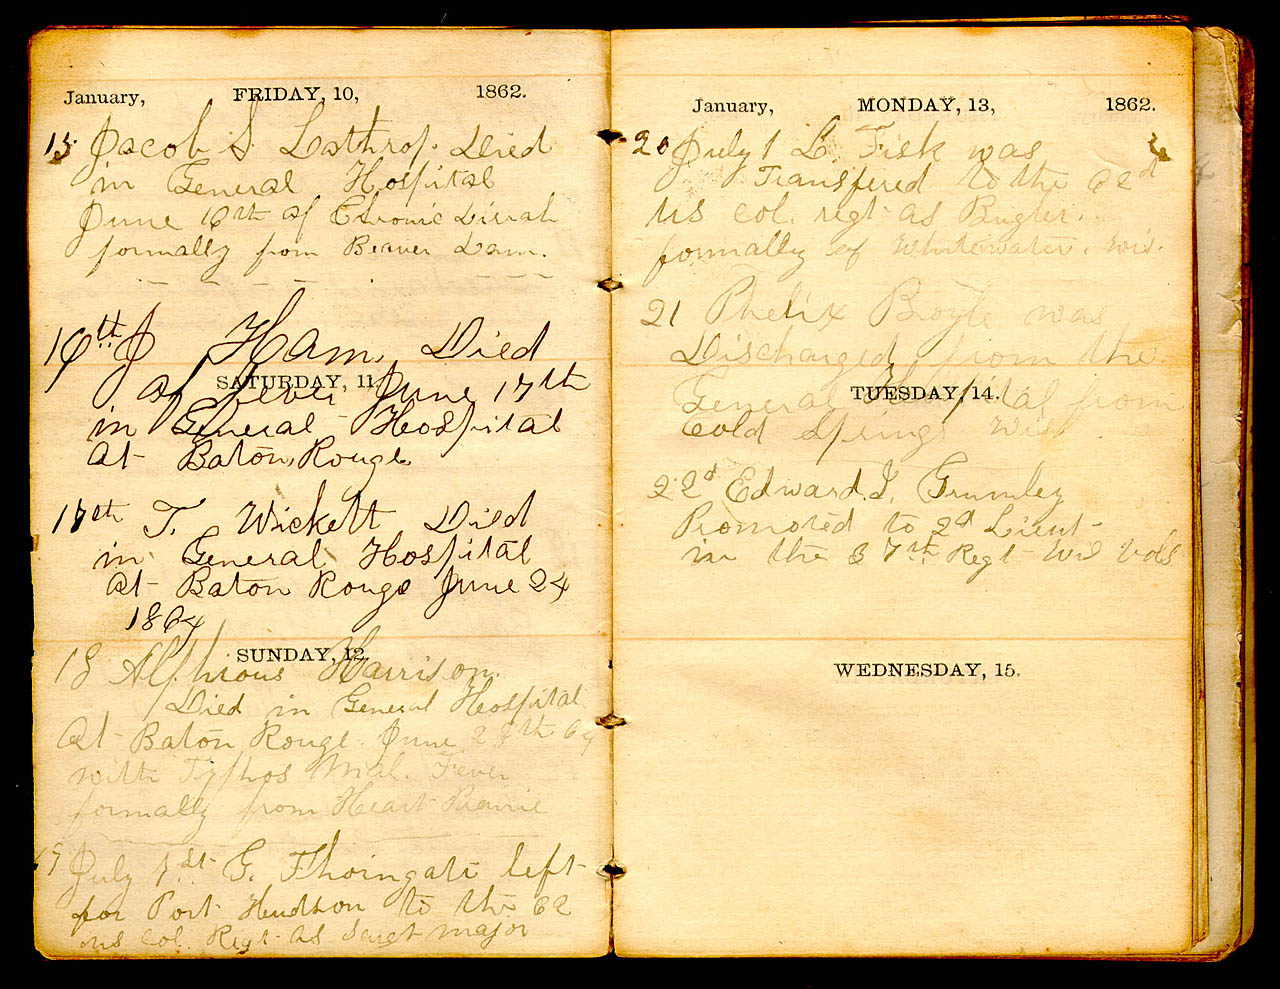 January, FRIDAY, 10, 1862.
15 Jacob S. Lathrop. Died
in General Hospital
June 16th of Chronic Diirah
formally from Beaver Dam.
16th J Ham. Died
SATURDAY, 11.
of Fever June 17th
in General Hospital
At Baton Rouge
17th T. Wickett Died
in General Hospital
At Baton Rouge June 24
1864
SUNDAY, 12.
18 Alphious Harrison.
Died in General Hospital
At Baton Rouge June 28th 64
with Typhos Mal. Fever
formally from Heart Prairie
19 July 1st G. Thorngate left
for Port Hendson to the 62
us col. Regt as Sargt major
January, MONDAY, 13, 1862.
20 July 1 L. Fisk was
Transfered to the 62d
us col. regt as Bugler.
formally of Whitewater. Wis.
21 Phelix Boyle was
Discharged from the
TUESDAY, 14.
General Hospital from
Cold Springs Wis
22d Edward. I. Grumley
Promoted to 2d Lieut
in the 37th Regt Wis Vols
WEDNESDAY, 15.